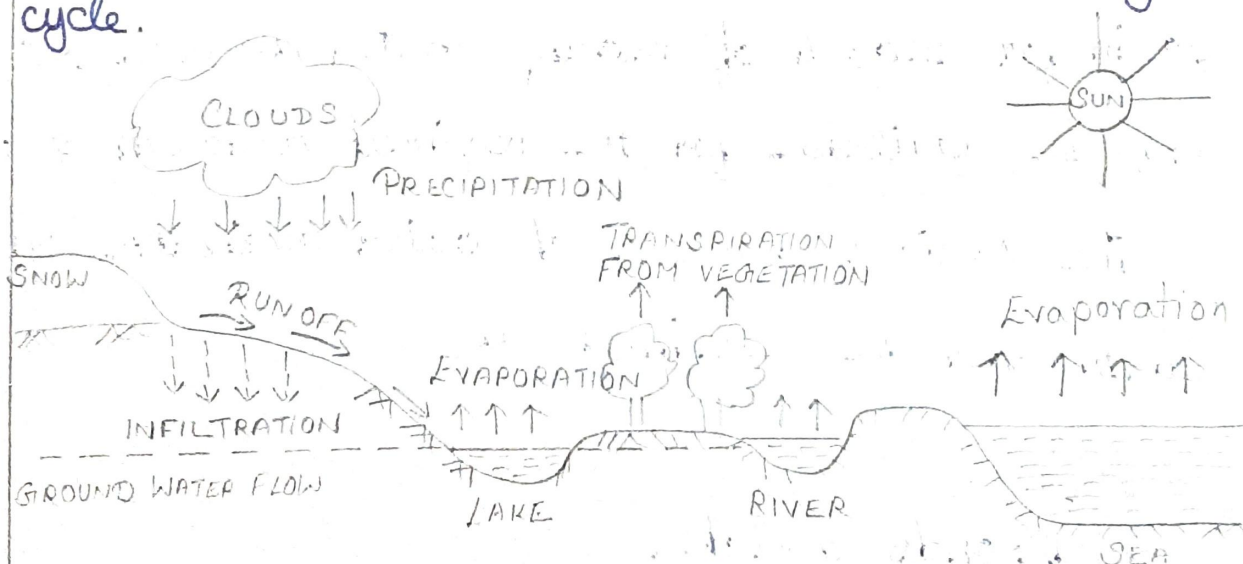 cycle.
SUN
CLOUDS
PRECIPITATION
TRANSPIRATION
FROM VEGETATION
SNOW
RUN OFF
Evaporation
EVAPORATION
INFILTRATION
GROUND WATER FLOW
LAKE
RIVER
SEA